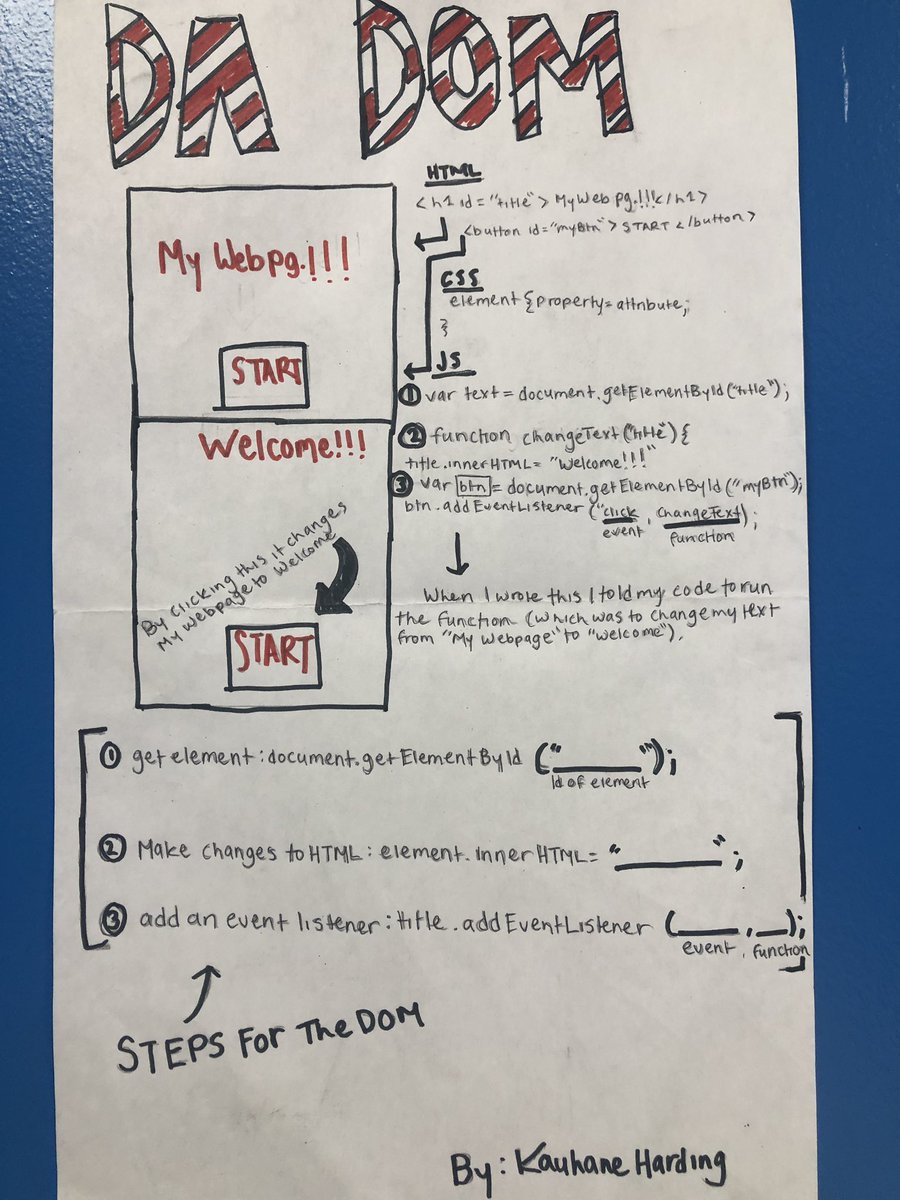 DA DOM
HTML
<h1 id="title">My Web pg.!!!</h1>
<button id="myBtn">START</button>
My Webpg.!!!
START
CSS
element {property=attribute;
}
JS
① var text = document.getElementById("title");
② function changeText("title"){
title.innerHTML= "Welcome!!!"
③ var btn = document.getElementById("myBtn");
btn.addEventListener ("click, changeText);
event function
Welcome!!!
By clicking this it changes
My webpage to Welcome
START
When I wrote this I told my code to run
the function (which was to change my text
from "My Webpage" to "Welcome").
① get element: document.getElementById ("______");
Id of element
② Make changes to HTML: element.innerHTML= "______";
③ add an event listener: title.addEventListener (____, __);
event, function
STEPS For The DOM
By: Kauhane Harding